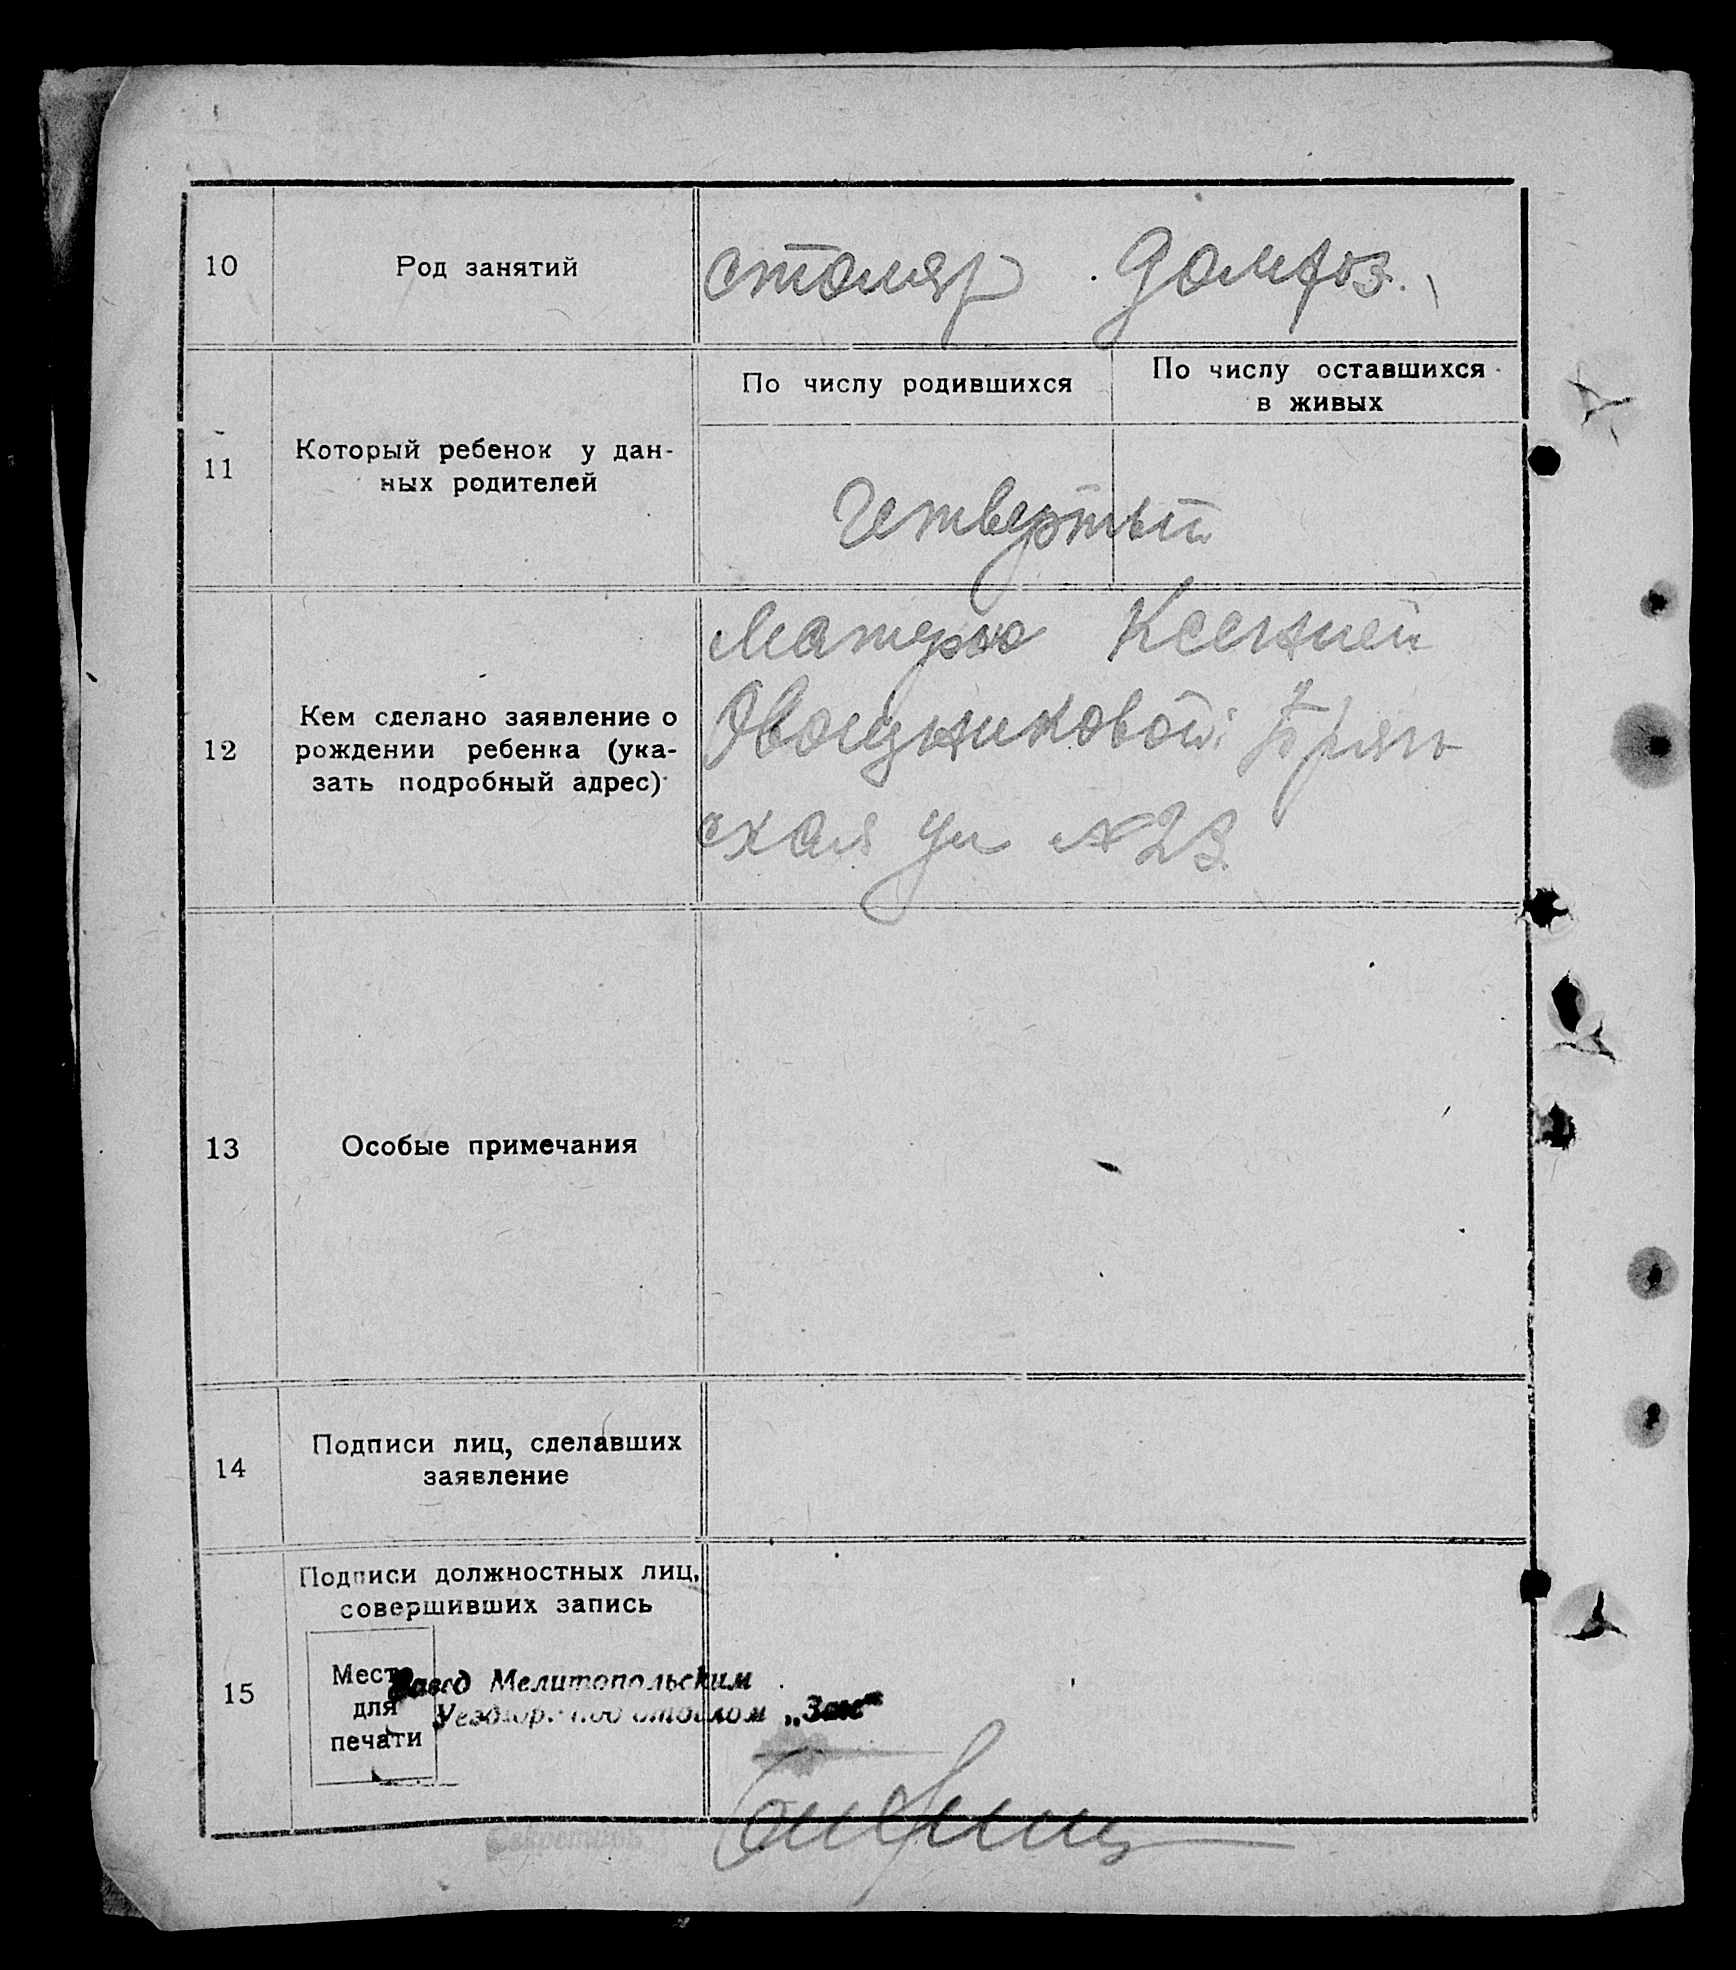 10
Род занятий
столяр домхоз.
11
Который ребенок у дан-
ных родителей
По числу родившихся
По числу оставшихся
в живых
Четвертый
12
Кем сделано заявление о
рождении ребенка (ука-
зать подробный адрес)
Матерью Ксенией
Овощниковой: Брян
ская ул №23
13
Особые примечания
14
Подписи лиц, сделавших
заявление
15
Подписи должностных лиц,
совершивших запись
Место
для
печати
Завед Мелитопольским
под отделом „Загс“
Секретарь